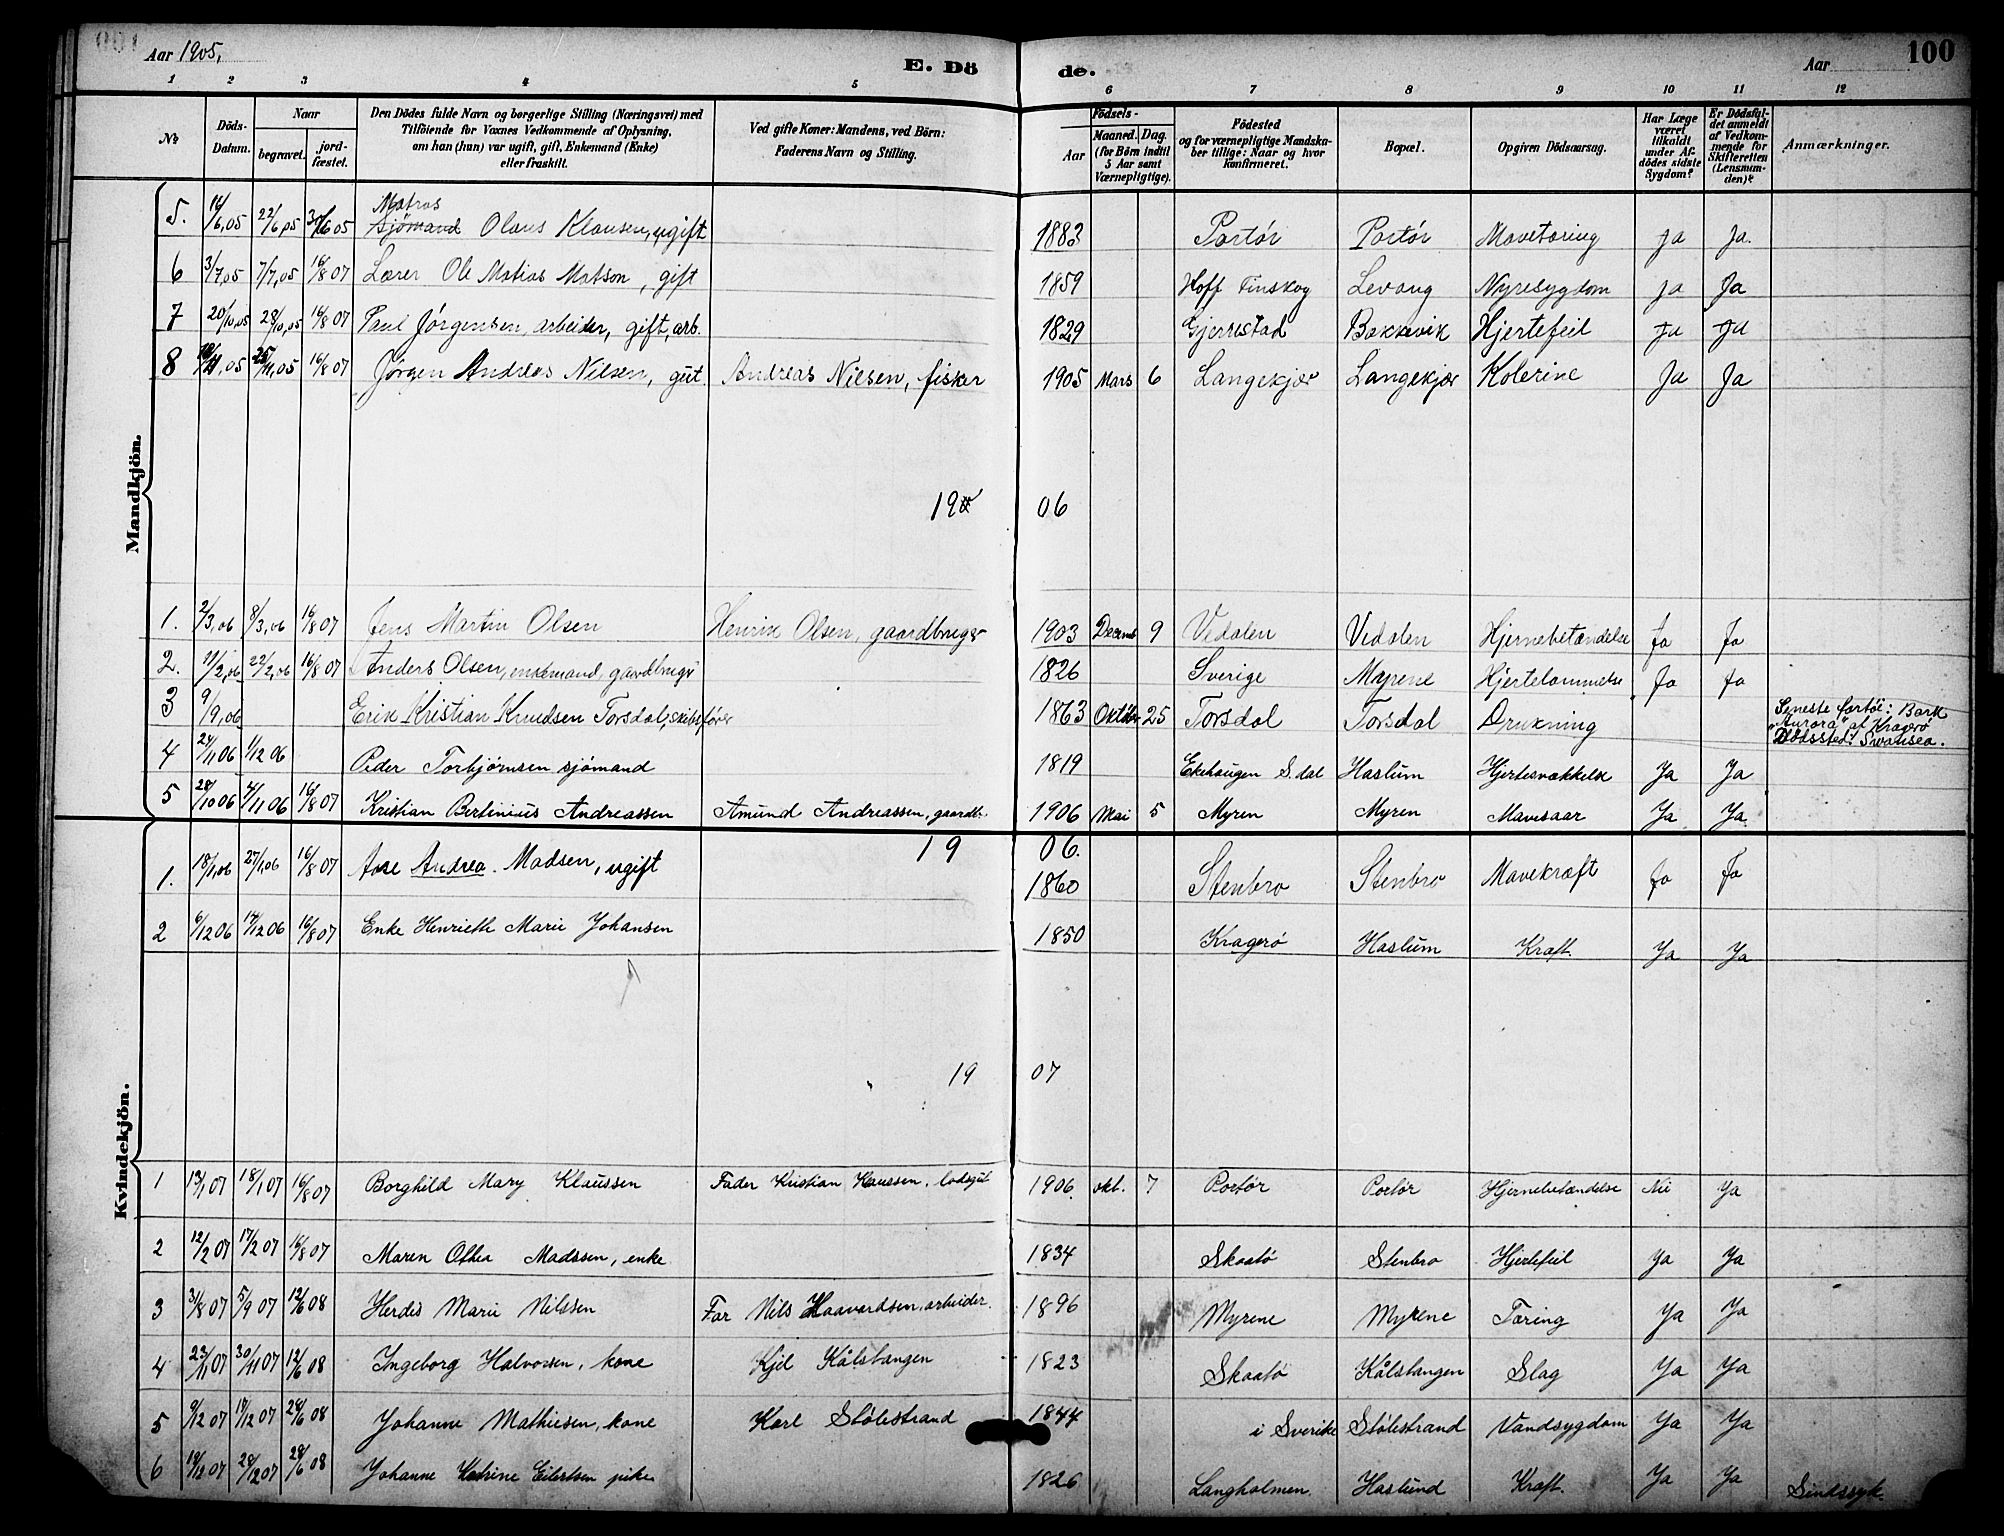 Aar 1905,
E. Dö de.
Aar
100
1 2 3 4 5 6 7 8 9 10 11 12
No.
Döds-Datum.
Naar
begravet.
jordfæstet.
Den Dödes fulde Navn og borgerlige Stilling (Næringsvei) med
Tilföiende for Voxnes Vedkommende af Oplysning,
om han (hun) var ugift, gift, Enkemand (Enke)
eller fraskilt.
Ved gifte Koner: Mandens, ved Börn:
Faderens Navn og Stilling.
Födsels-
Aar
Maaned. Dag.
(for Börn indtil
5 Aar samt
Værnepligtige).
Födested
og for værnepligtige Mandska-
ber tillige: Naar og hvor
konfirmeret.
Bopæl.
Opgiven Dödsaarsag.
Har Læge
været
tilkaldt
under Af-
dödes sidste
Sygdom?
Er Dödsfal-
det anmeldt
af Vedkom-
mende for
Skifteretten
(Lensman-
den)?
Anmærkninger.
Mandkjön.
Matros
5. 22/6,05 sjömand Olaus Klausen, ugift 1883 Portør Portør Mavetæring Ja Ja.
6 3/7,05 7/7,05 16/8 07 Lærer Ole Matias Matson, gift 1859 Hoff Finskog Levang Nyresygdom Ja Ja
7 20/10,05 28/10,05 16/8 07 Paul Jørgensen, arbeider, gift, arb. 1829 Gjerrestad Bakkevik Hjertefeil Ja Ja
8 25/11,05 16/8 07 Jørgen Andreas Nilsen, gut Andreas Nilsen, fisker 1905 Mars 6 Langekjær Langekjær Kolerine Ja Ja
19 06
1. 2/3,06 8/3,06 16/8 07 Jens Martin Olsen Henrik Olsen, gaardbruger 1903 Decemb 9 Vedalen Vedalen Hjernebetændelse Ja Ja
2. 11/2,06 22/2,06 16/8 07 Anders Olsen, enkemand, gaardbruger 1826 Sverige Myrene Hjertelammelse Ja Ja
3 9/9,06 Erik Kristian Knudsen Torsdal, skibsfører 1863 Oktober 25 Torsdal Torsdal Drukning Seneste fartøi: Bark
"Aurora" af Kragerø
Dødssted: Swansea.
4 24/11 06 1/12 06 Peder Torbjørnsen sjömand 1819 Ekehaugen S.dal Haslum Hjertesvækkelse Ja Ja
5 28/10 06 4/11 06 16/8 07 Kristian Bertinius Andreassen Amund Andreassen, gaardb. 1906 Mai 5 Myren Myren Mavesaar Ja Ja.
Kvindekjön.
19 06.
1. 18/1,06 27/1,06 16/8 07 Aase Andrea Madsen, ugift 1860 Stenbro Stenbro Mavekræft Ja Ja
2 6/12 06 14/12 06 16/8 07 Enke Henriette Marie Johansen 1850 Kragerø Haslum Kræft. Ja Ja
19 07
1 13/1 07 18/1 07 16/8 07 Borghild Mary Klaussen Fader Kristian Klaussen, lodsgut 1906. okt. 7 Portør Portør Hjernebetændelse Nei Ja
2 12/2 07 17/2 07 16/8 07 Maren Othea Madssen, enke 1834 Skaatø Stenbro Hjertefeil Ja Ja
3 31/8 07 5/9 07 12/6 08 Herdis Marie Nilssen Far Nils Haavardsen, arbeider. 1896 Myrene Myrene Tæring Ja Ja
4 23/11 07 30/11 07 12/6 08 Ingeborg Halvorsen, kone Kjel Kålstangen 1823 Skaatø Kålstangen Slag Ja Ja
5 9/12 07 19/12 07 28/6 08 Johanne Mathiesen, kone Karl Stölestrand 1844 i Sverike Stölestrand Vandsygdom Ja Ja
6 28/12 07 28/6 08 Johanne Katrine Eilertsen pike 1826 Langholmen. Haslund Kræft. Ja Ja Sindssyk.